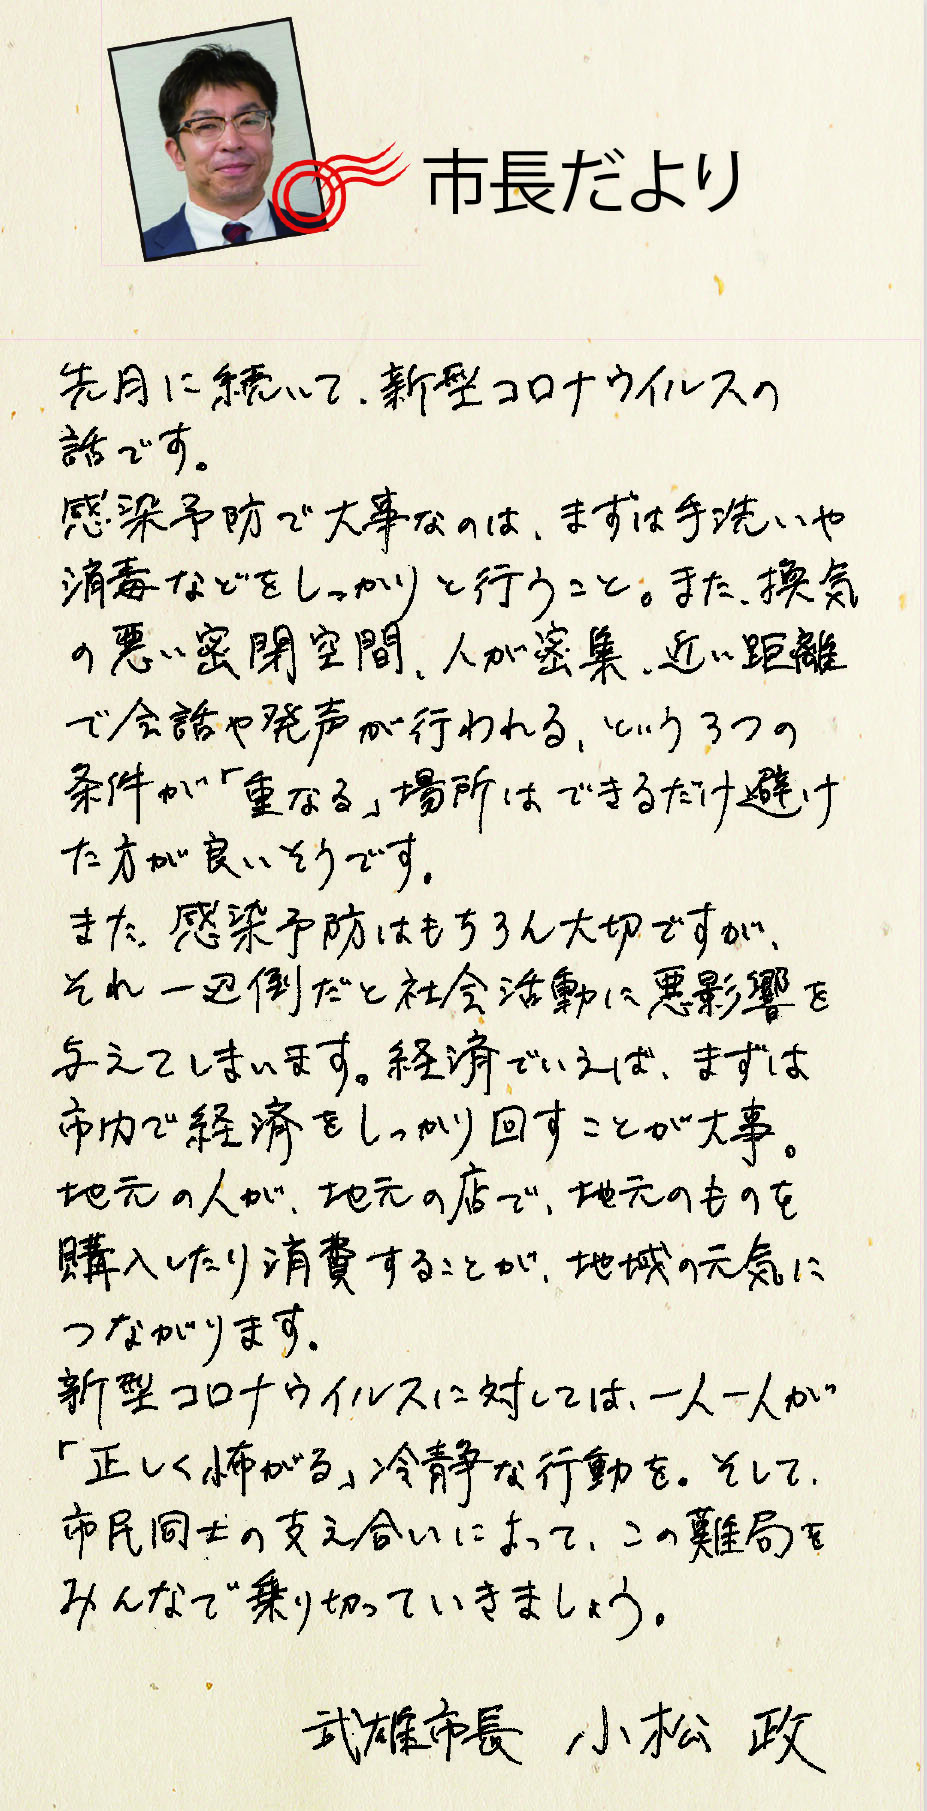 市長だより
先月に続いて、新型コロナウイルスの
話です。
感染予防で大事なのは、まずは手洗いや
消毒などをしっかりと行うこと。また、換気
の悪い密閉空間、人が密集、近い距離
で会話や発声が行われる、という3つの
条件が「重なる」場所はできるだけ避け
た方が良いそうです。
また、感染予防はもちろん大切ですが、
それ一辺倒だと社会活動に悪影響を
与えてしまいます。経済でいえば、まずは
市内で経済をしっかり回すことが大事。
地元の人が、地元の店で、地元のものを
購入したり消費することが、地域の元気に
つながります。
新型コロナウイルスに対しては、一人一人が
「正しく怖がる」冷静な行動を。そして、
市民同士の支え合いによって、この難局を
みんなで乗り切っていきましょう。
武雄市長 小松 政